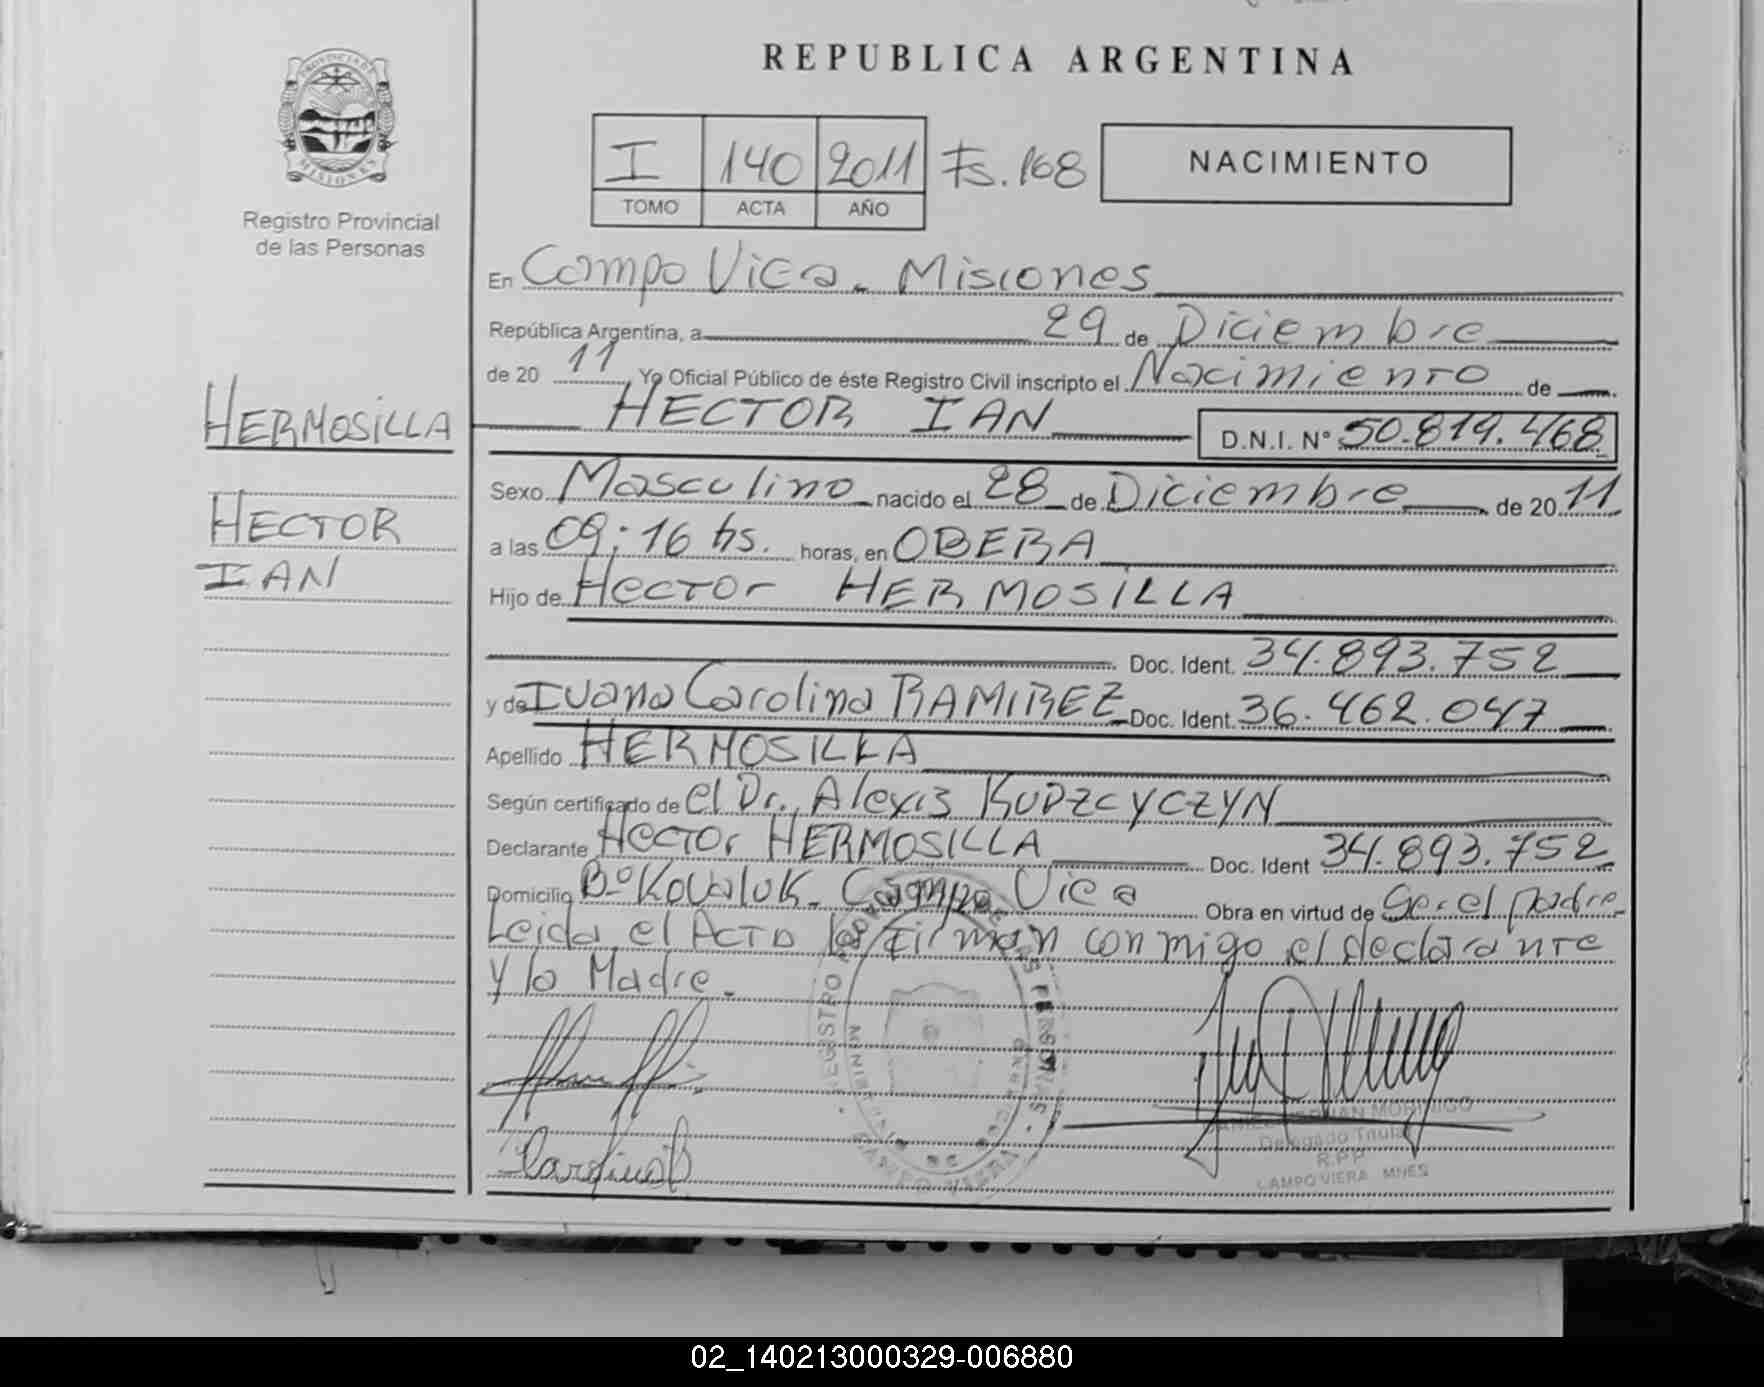 REPUBLICA ARGENTINA
PROVINCIA DE
MISIONES
Registro Provincial
de las Personas
I 140 2011 Fs. 168
TOMO ACTA AÑO
NACIMIENTO
En Campo Viera - Misiones
República Argentina, a 29 de Diciembre
de 20 11, Yo Oficial Público de éste Registro Civil inscripto el Nacimiento de
HECTOR IAN D.N.I. Nº 50.819.468
HERMOSILLA
HECTOR
IAN
Sexo Masculino nacido el 28 de Diciembre de 20 11
a las 09:16 hs. horas, en OBERA
Hijo de Hector HERMOSILLA
Doc. Ident. 34.893.752
y de Ivana Carolina RAMIREZ Doc. Ident. 36.462.047
Apellido HERMOSILLA
Según certificado de el Dr. Alexis KUDZCYCZYN
Declarante Hector HERMOSILLA Doc. Ident 34.893.752
Domicilio Bº Kovaluk - Campo Viera Obra en virtud de Ser el padre
Leida el Acta la Firman conmigo el declarante
y la Madre.
REGISTRO
CAMPO VIERA
MORINIGO
Delegado Titular
R.P.P.
CAMPO VIERA MNES
02_140213000329-006880